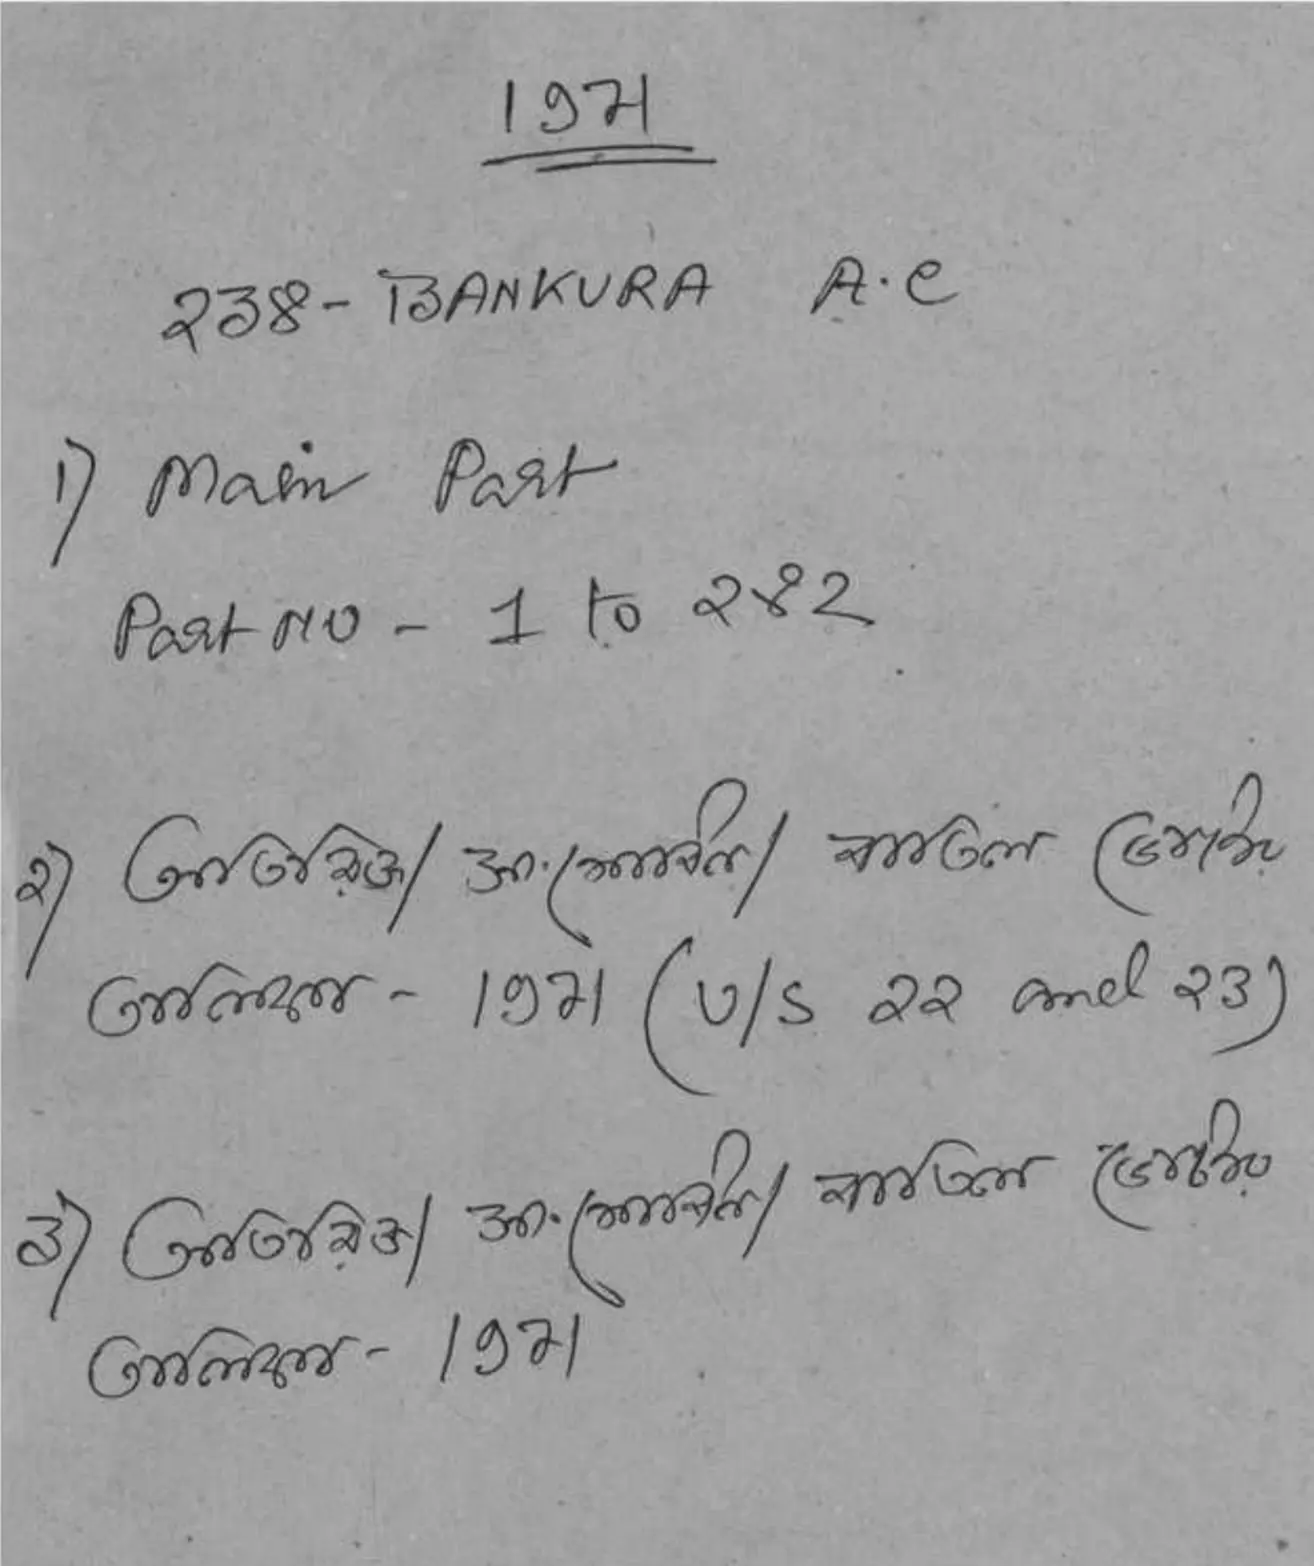 1971
238-BANKURA A.C
1) Main Part
Part No - 1 to 242
২) অতিরিক্ত/ সংশোধিত/ বাতিল ভোটার
তালিকা - 1971 (U/S 22 and 23)
৩) অতিরিক্ত/ সংশোধিত/ বাতিল ভোটার
তালিকা - 1971